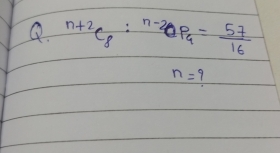 Q. ⁿ⁺²C₈ : ⁿ⁻²P₄ = 57/16
n = ?